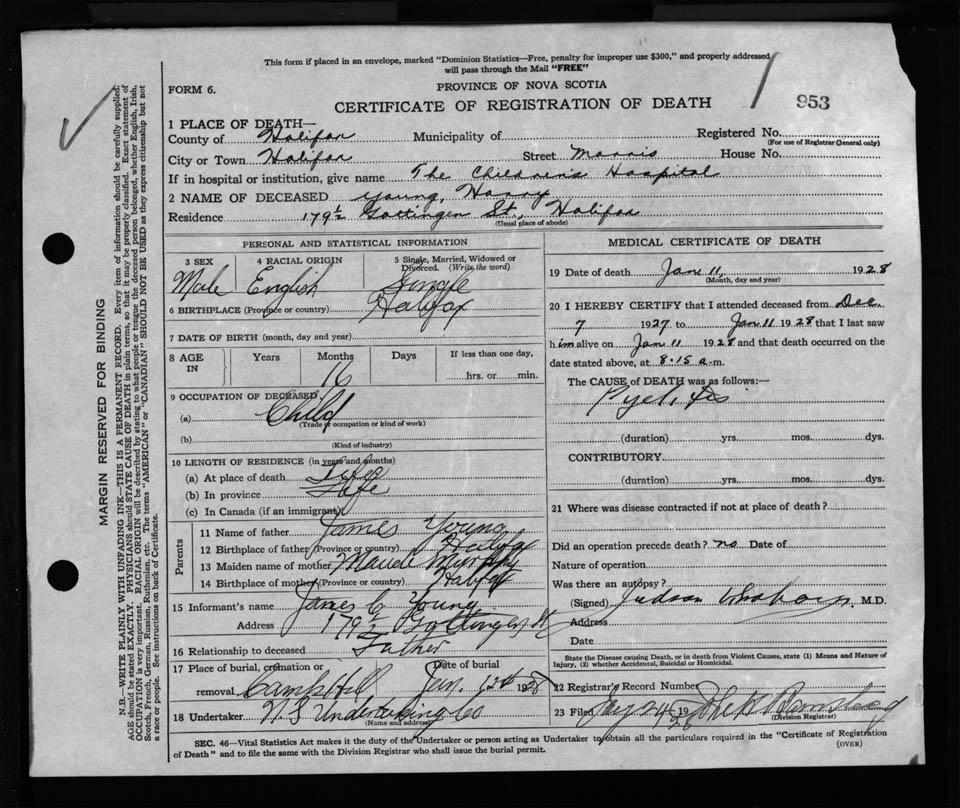 This form if placed in an envelope, marked "Dominion Statistics—Free, penalty for improper use $300," and properly addressed
will pass through the Mail "FREE"
FORM 6.
PROVINCE OF NOVA SCOTIA
CERTIFICATE OF REGISTRATION OF DEATH
953
1 PLACE OF DEATH—
County of Halifax Municipality of Registered No.
(For use of Registrar General only)
City or Town Halifax Street Morris House No.
If in hospital or institution, give name The Children's Hospital
2 NAME OF DECEASED Young, Harry
Residence 179½ Gottingen St., Halifax
(Usual place of abode)
PERSONAL AND STATISTICAL INFORMATION
3 SEX 4 RACIAL ORIGIN 5 Single, Married, Widowed or
Divorced. (Write the word)
Male English Single
6 BIRTHPLACE (Province or country) Halifax
7 DATE OF BIRTH (month, day and year)
8 AGE IN Years Months Days If less than one day,
16 hrs. or min.
9 OCCUPATION OF DECEASED
(a) Child
(Trade or occupation or kind of work)
(b)
(Kind of industry)
10 LENGTH OF RESIDENCE (in years and months)
(a) At place of death Life
(b) In province Life
(c) In Canada (if an immigrant)
Parents
11 Name of father James Young
12 Birthplace of father (Province or country) Halifax
13 Maiden name of mother Maude Murphy
14 Birthplace of mother (Province or country) Halifax
15 Informant's name James C Young
Address 179½ Gottingen St
16 Relationship to deceased Father
17 Place of burial, cremation or Date of burial
removal Camp Hill Jan. 12th 1928
18 Undertaker N.S Undertaking Co
(Name and address)
MEDICAL CERTIFICATE OF DEATH
19 Date of death Jan 11, 1928
(Month, day and year)
20 I HEREBY CERTIFY that I attended deceased from Dec.
7 1927 to Jan 11 1928 that I last saw
him alive on Jan 11 1928 and that death occurred on the
date stated above, at 8.15 a.m.
The CAUSE of DEATH was as follows:—
Pyelitis
(duration) yrs. mos. dys.
CONTRIBUTORY
(duration) yrs. mos. dys.
21 Where was disease contracted if not at place of death?
Did an operation precede death? no Date of
Nature of operation
Was there an autopsy?
(Signed) Judson M.D.
Address
Date
State the Disease causing Death, or in death from Violent Causes, state (1) Means and Nature of
Injury, (2) whether Accidental, Suicidal or Homicidal.
22 Registrar's Record Number
23 Filed 19
(Division Registrar)
SEC. 46—Vital Statistics Act makes it the duty of the Undertaker or person acting as Undertaker to obtain all the particulars required in the "Certificate of Registration
of Death" and to file the same with the Division Registrar who shall issue the burial permit.
(OVER)
MARGIN RESERVED FOR BINDING
N.B.—WRITE PLAINLY WITH UNFADING INK—THIS IS A PERMANENT RECORD. Every item of information should be carefully supplied.
AGE should be stated EXACTLY. PHYSICIANS should STATE CAUSE OF DEATH in plain terms, so that it may be properly classified. Exact statement of
OCCUPATION is very important. RACIAL ORIGIN will be described by stating to what people or tongue the deceased person belonged, whether English, Irish,
Scotch, French, German, Russian, Ruthenian, etc. The terms "AMERICAN" or "CANADIAN" SHOULD NOT BE USED as they express citizenship but not
a race or people. See instructions on back of Certificate.